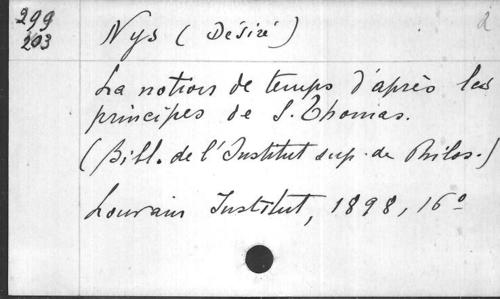 299
203
Nys (Désiré)
2
La notion de temps d'après les
principes de S. Thomas.
(Bibl. de l'Institut sup. de Philos.)
Louvain Institut, 1898, 16°